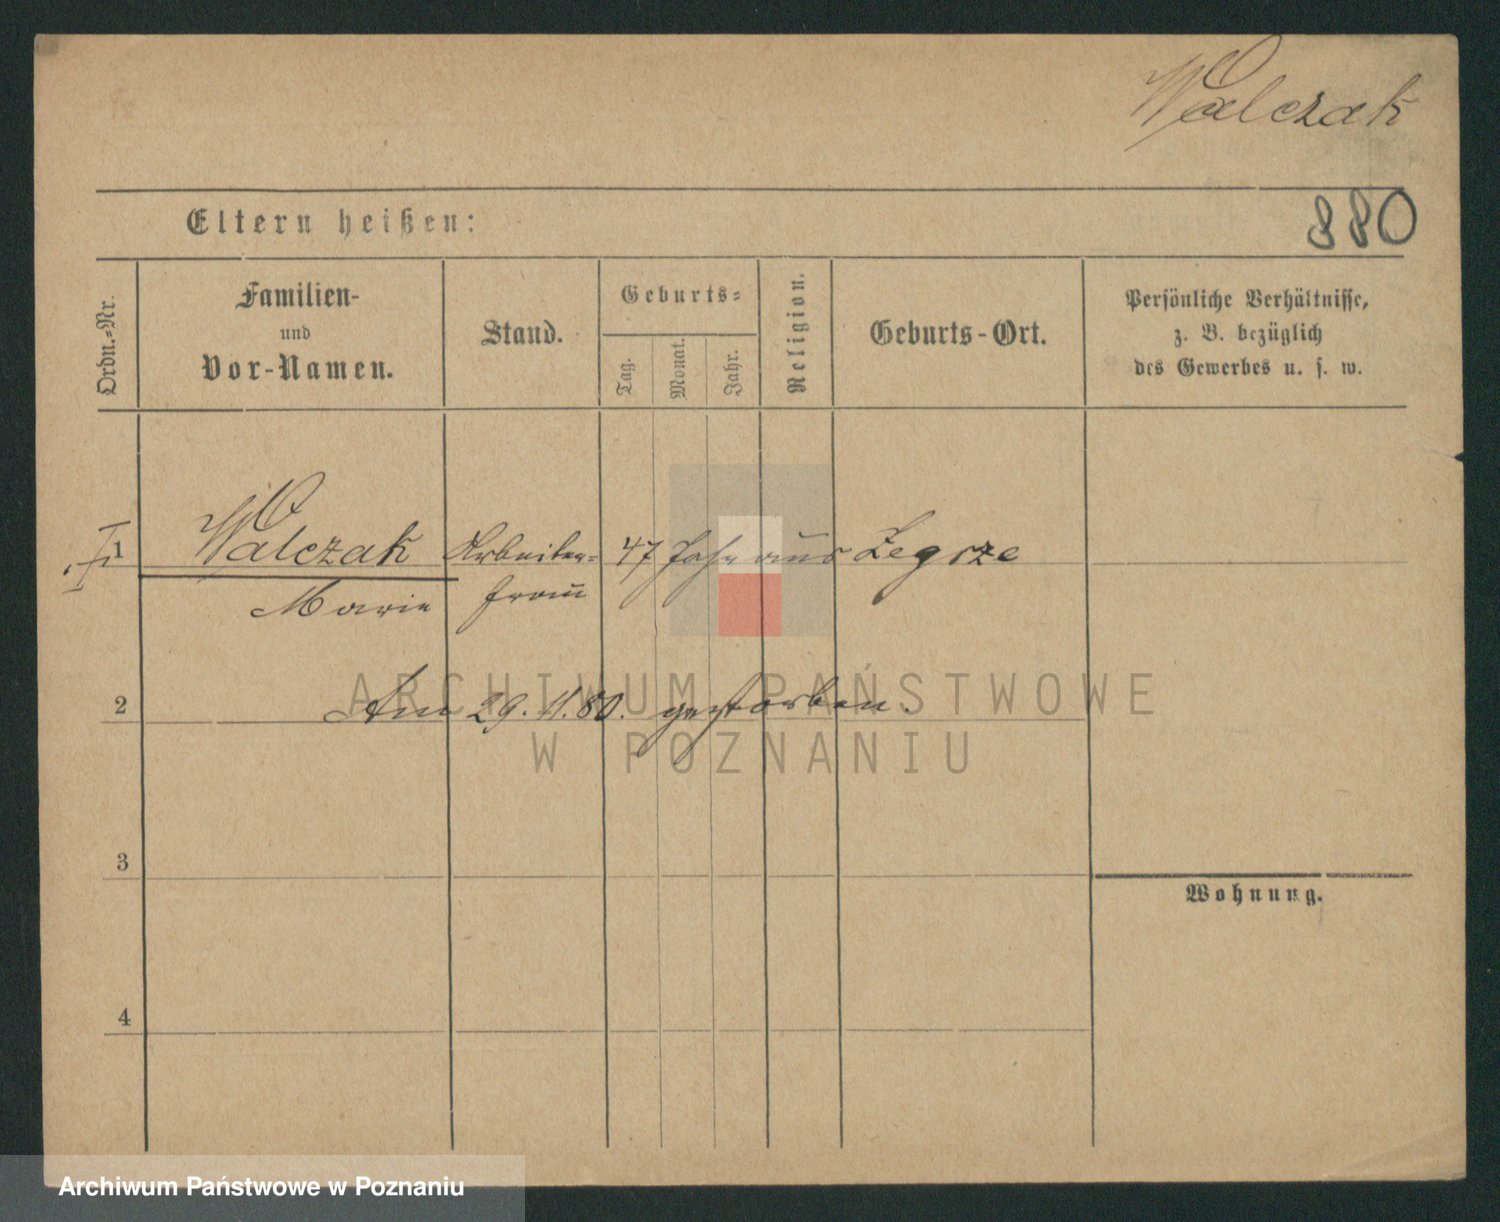 Walczak
Eltern heißen:
880
Ordn.-Nr.
Familien-
und
Vor-Namen.
Stand.
Geburts-
Tag.
Monat.
Jahr.
Religion.
Geburts-Ort.
Persönliche Verhältnisse,
z. B. bezüglich
des Gewerbes u. s. w.
I 1 Walczak Arbeiter- 47 Jahr aus Zegrze
Marie frau
2 Am 29.11.80. gestorben.
ARCHIWUM PAŃSTWOWE
W POZNANIU
3
Wohnung.
4
Archiwum Państwowe w Poznaniu